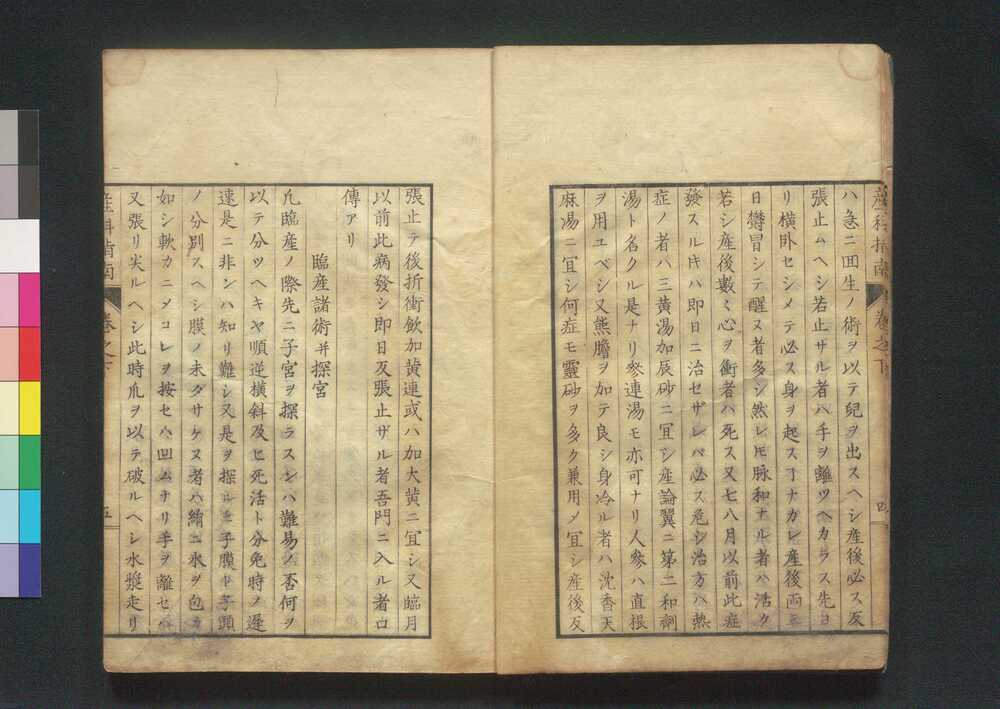 産科指南 卷之下 四
ハ急ニ回生ノ術ヲ以テ兒ヲ出スヘシ産後必ス反
張止ムヘシ若止サル者ハ手ヲ離ツヘカラス先ヨ
リ横卧セシメテ必ス身ヲ起スヿナカレ産後両三
日鬱冒シテ醒ヌ者多シ然レ𪜈脉和ナル者ハ活ク
若シ産後數〻心ヲ衝者ハ死ス又七八月以前此症
發スル𪜈ハ即日ニ治セザレバ必ス危シ治方ハ熱
症ノ者ハ三黄湯加辰砂ニ宜シ産論翼ニ第二和劑
湯ト名クル是ナリ參連湯モ亦可ナリ人參ハ直根
ヲ用ユベシ又熊膽ヲ加テ良シ身冷ル者ハ沈香天
麻湯ニ宜シ何症モ靈砂ヲ多ク兼用メ宜シ産後反
張止テ後折衝飲加黄連或ハ加大黄ニ宜シ又臨月
以前此病發シ即日反張止ザル者吾門ニ入ル者口
傳アリ
臨産諸術并探宮
凢臨産ノ際先ニ子宮ヲ探ラスンハ難易ノ否何ヲ
以テ分ツヘキヤ順逆横斜及ヒ死活ト分免時ノ遲
速是ニ非ンハ知リ難シ又是ヲ探ルニ子膜ト子頭
ノ分別スヘシ膜ノ未タサケヌ者ハ綃ニ氷ヲ包ヿ
如シ軟カニメコレヲ按セハ凹ムナリ手ヲ離セハ
又張リ尖ルヘシ此時爪ヲ以テ破ルヘシ水漿走リ
産科指南 卷之下 五